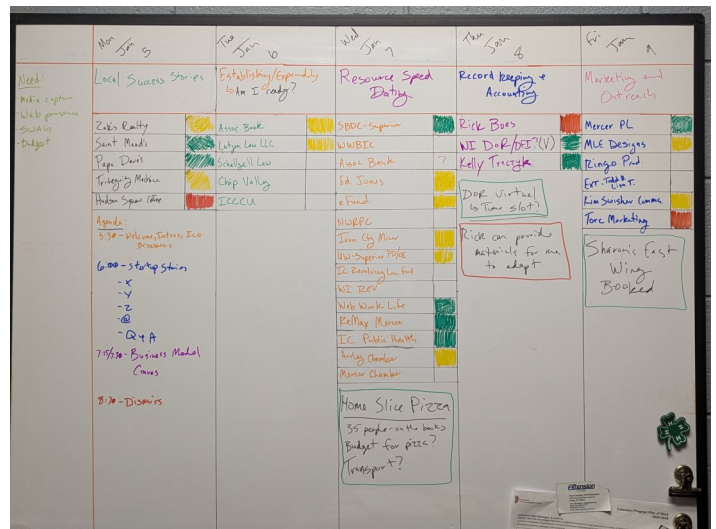 Need:
-Media capture
-Web presence
-SWAG
-Budget
Mon
Jan 5
Local Success Stories
Zak's Realty
Saint Mend's
Papa Dave's
Hudson
Agenda:
5:30 - Welcome, Intros, Ice
Breakers
6:00 - Startup Stories
- X
- Y
- Z
- @
- Q & A
7:15/7:30 - Business Model
Canvas
8:30 - Dismiss
Tue
Jan 6
Establishing/Expanding
↳ Am I ready?
Assoc. Bank
Law LLC
Law
Chip Valley
ICCCU
Wed
Jan 7
Resource Speed
Dating
SBDC - Superior
WWBIC
Assoc Bank ?
Ed Jones
eFund
NWRPC
UW-Superior
IC Revolving Loan Fund
WI
Web Work Life
ReMax Mercer
IC Public Health
Hurley Chamber
Mercer Chamber
Home Slice Pizza
35 people - on the books
Budget for pizza?
Transport?
Thu
Jan 8
Record keeping &
Accounting
Rick Boes
WI DOR/DFI? (V)
Kelly Traczyk
DOR Virtual
↳ Time slot?
Rick can provide
materials for me
to adapt
Fri
Jan 9
Marketing and
Outreach
Mercer PL
MLE Designs
Ringo Prod
EXT. - Todd &
Lisa T.
Kim Swisher Comms.
Torc Marketing
Sharon's East
Wing
Booked
H H H H
Extension